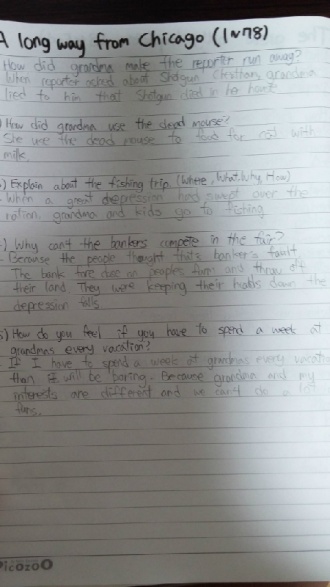 A long way from Chicago (1~78)
How did grandma make the reporter run away?
When reporter asked about Shotgun Cheatham, grandma
lied to him that Shotgun died in her house
How did grandma use the dead mouse?
She use the dead mouse to food for not with
milk.
) Explain about the fishing trip. (Where, What, Why, How)
- When a great depression had swept over the
nation, grandma and kids go to fishing
) Why can't the bankers compete in the fair?
- Because the people thought that's banker's fault.
The bank on people's farm and throw off
their land. They were keeping their heads down the
depression
) How do you feel if you have to spend a week at
grandmas every vacation?
If I have to spend a week at grandmas every vacation
than it will be boring. Because grandma and my
interests are different and we can't do a lot

Picozo